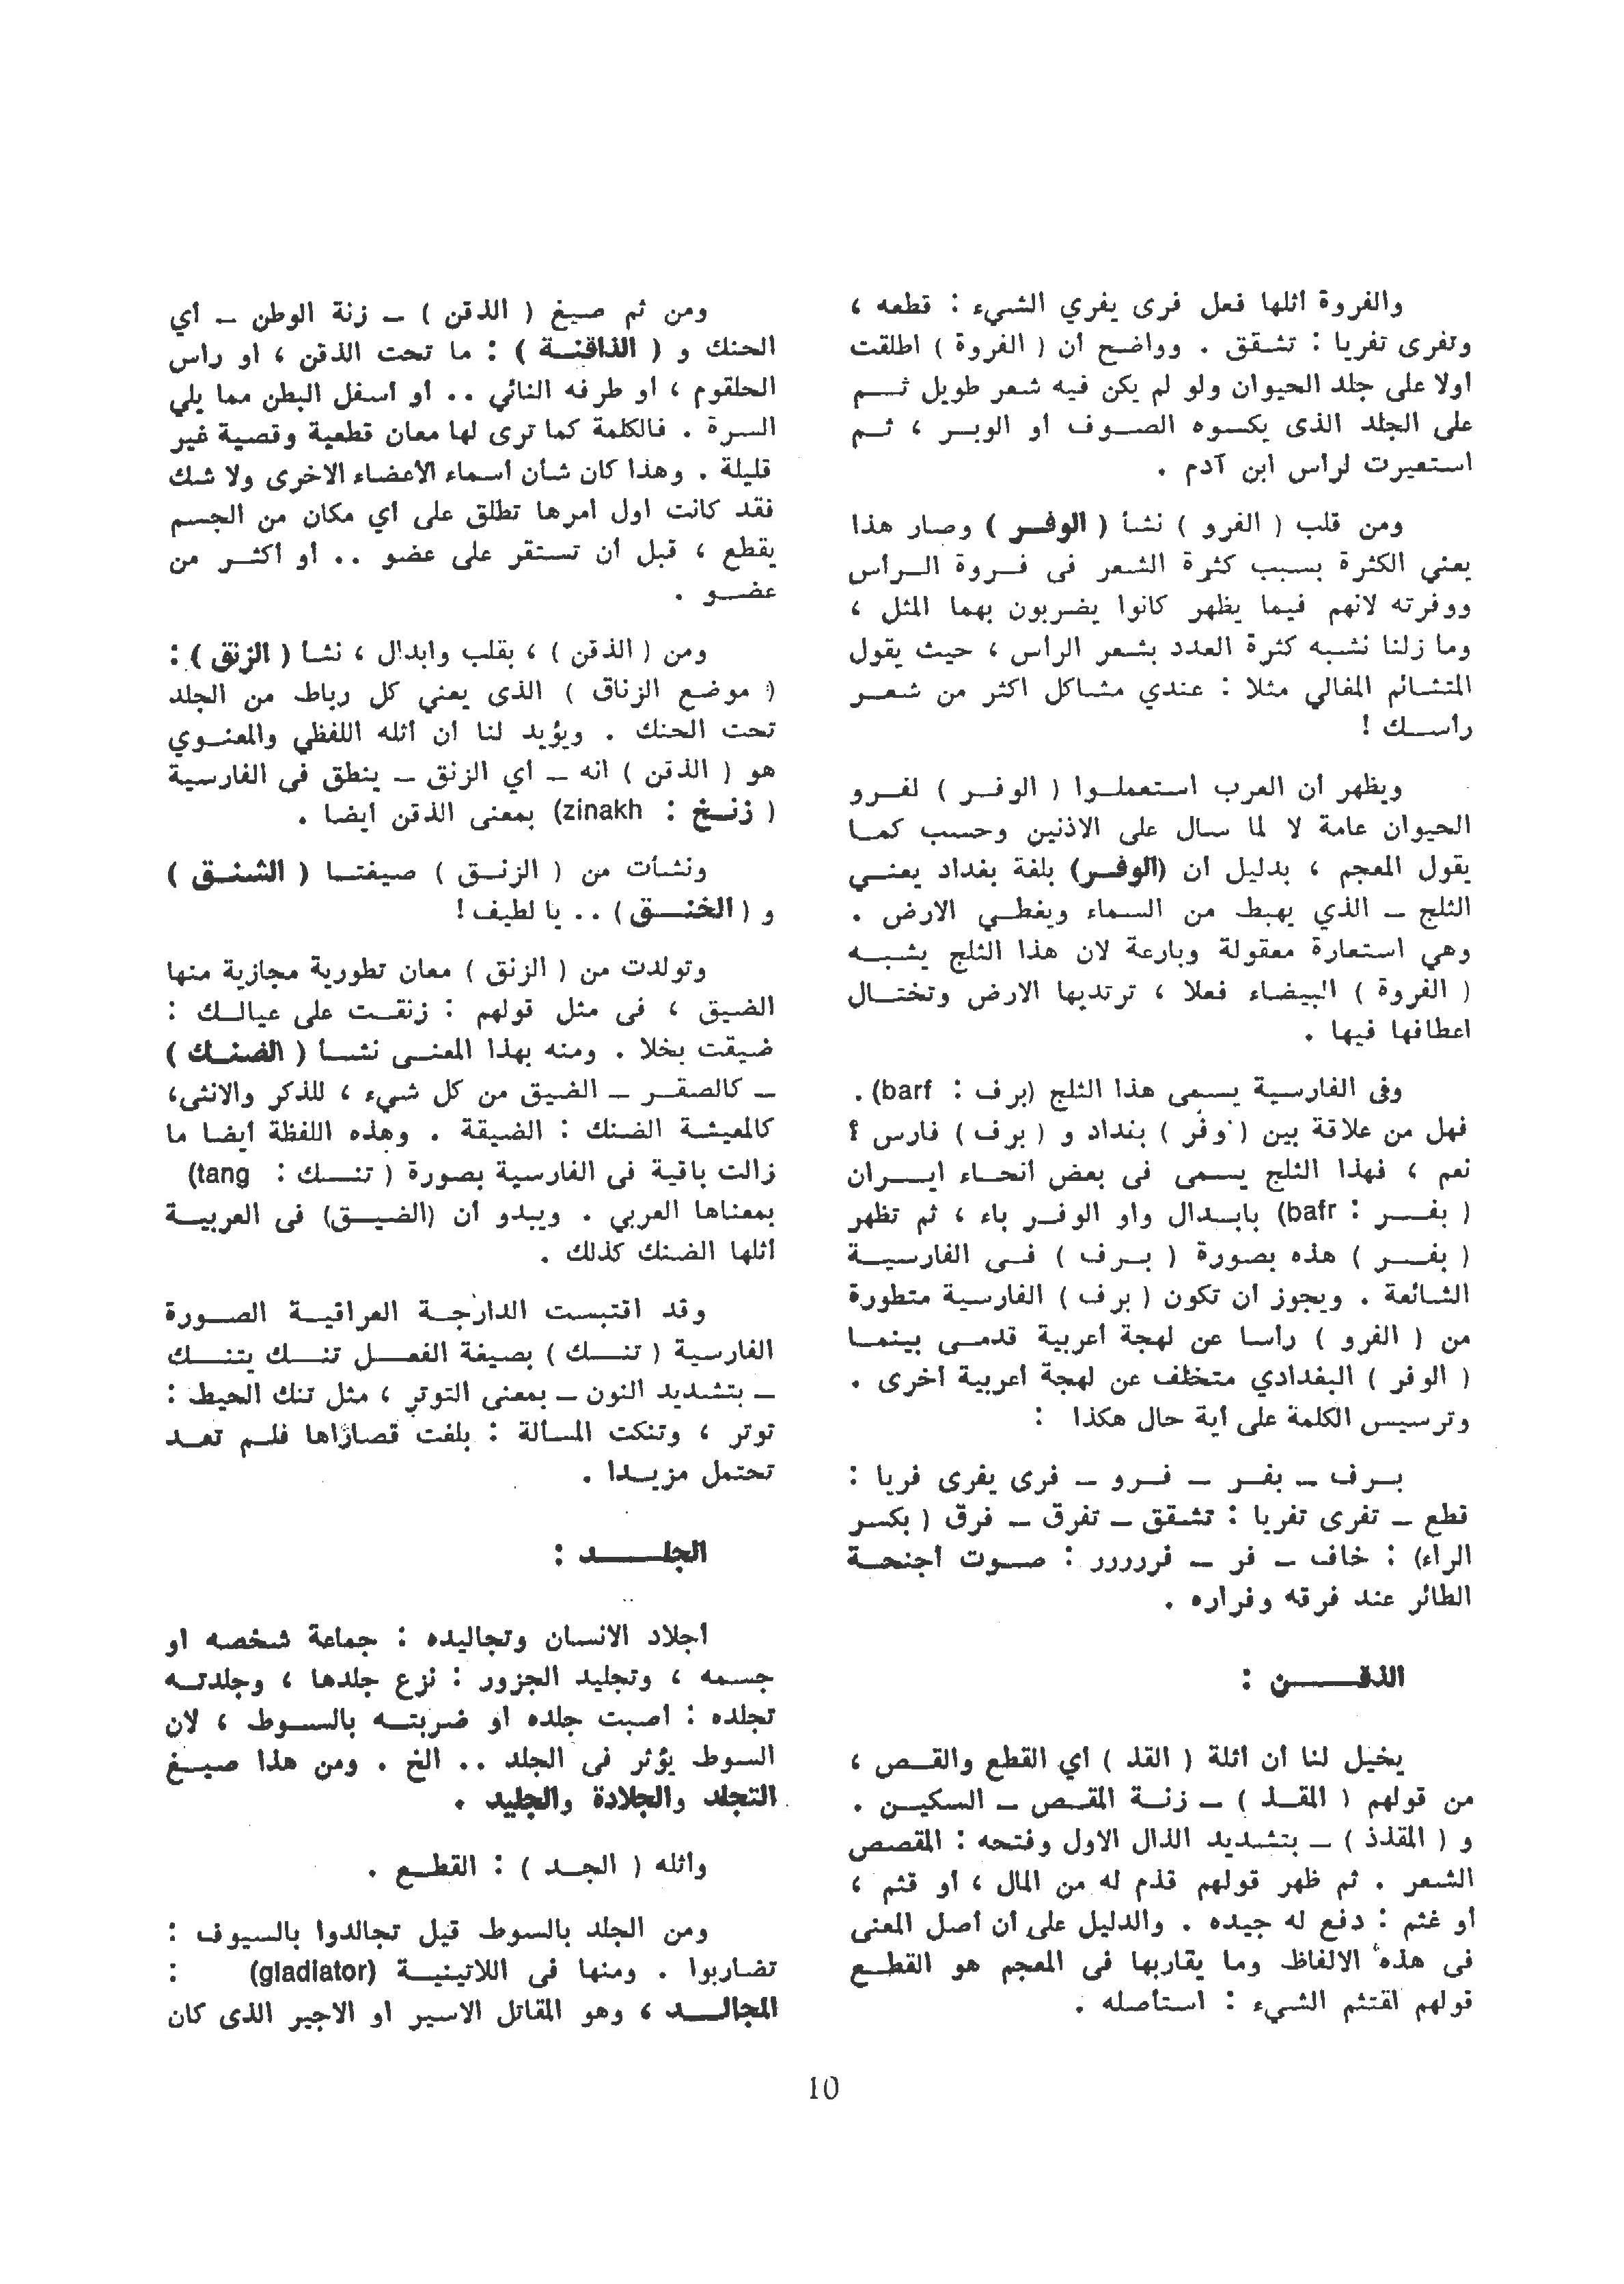 والفروة اثلها فعل فرى يفري الشيء : قطعه ،
وتفرى تفريا : تشقق . وواضح ان ( الفروة ) اطلقت
اولا على جلد الحيوان ولو لم يكن فيه شعر طويل ثم
على الجلد الذى يكسوه الصوف او الوبر ، ثم
استعيرت لراس ابن آدم .
ومن قلب ( الفرو ) نشأ ( الوفر ) وصار هذا
يعني الكثرة بسبب كثرة الشعر فى فروة الراس
ووفرته لانهم فيما يظهر كانوا يضربون بهما المثل ،
وما زلنا نشبه كثرة العدد بشعر الراس ، حيث يقول
المتشائم المغالي مثلا : عندي مشاكل اكثر من شعر
رأسك !
ويظهر ان العرب استعملوا ( الوفر ) لفرو
الحيوان عامة لا لما سال على الاذنين وحسب كما
يقول المعجم ، بدليل ان (الوفر) بلغة بغداد يعني
الثلج – الذي يهبط من السماء ويغطي الارض .
وهي استعارة معقولة وبارعة لان هذا الثلج يشبه
( الفروة ) البيضاء فعلا ، ترتديها الارض وتختال
اعطافها فيها .
وفى الفارسية يسمى هذا الثلج (برف : barf) .
فهل من علاقة بين ( وفر ) بغداد و ( برف ) فارس ؟
نعم ، فهذا الثلج يسمى فى بعض انحاء ايران
( بفر : bafr) بابدال واو الوفر باء ، ثم تظهر
( بفر ) هذه بصورة ( برف ) فى الفارسية
الشائعة . ويجوز ان تكون ( برف ) الفارسية متطورة
من ( الفرو ) رأسا عن لهجة أعربية قدمى بينما
( الوفر ) البغدادي متخلف عن لهجة أعربية اخرى .
وترسيس الكلمة على أية حال هكذا :
برف – بفر – فرو – فرى يفرى فريا :
قطع – تفرى تفريا : تشقق – تفرق – فرق ( بكسر
الراء) : خاف – فر – فررررر : صوت اجنحة
الطائر عند فرقه وفراره .
الذقن :
يخيل لنا ان اثلة ( القذ ) أي القطع والقص ،
من قولهم ( المقذ ) – زنة المقص – السكين .
و ( المقذذ ) – بتشديد الذال الاول وفتحه : المقصص
الشعر . ثم ظهر قولهم قذم له من المال ، أو قثم ،
أو غثم : دفع له جيده . والدليل على أن أصل المعنى
فى هذه الالفاظ وما يقاربها فى المعجم هو القطع
قولهم اقتثم الشيء : استأصله .
ومن ثم صيغ ( الذقن ) – زنة الوطن – أي
الحنك و ( الذاقنة ) : ما تحت الذقن ، او راس
الحلقوم ، او طرفه الناتي .. أو اسفل البطن مما يلي
السرة . فالكلمة كما ترى لها معان قطعية وقصية غير
قليلة . وهذا كان شأن أسماء الأعضاء الاخرى ولا شك
فقد كانت اول امرها تطلق على أي مكان من الجسم
يقطع ، قبل ان تستقر على عضو .. أو أكثر من
عضو .
ومن ( الذقن ) ، بقلب وابدال ، نشا ( الزنق ) :
( موضع الزناق ) الذى يعني كل رباط من الجلد
تحت الحنك . ويؤيد لنا ان أثله اللفظي والمعنوي
هو ( الذقن ) انه – أي الزنق – ينطق فى الفارسية
( زنخ : zinakh) بمعنى الذقن ايضا .
ونشأت من ( الزنق ) صيغتا ( الشنق )
و ( الخنق ) .. يا لطيف !
وتولدت من ( الزنق ) معان تطورية مجازية منها
الضيق ، فى مثل قولهم : زنقت على عيالك :
ضيقت بخلا . ومنه بهذا المعنى نشأ ( الضنك )
– كالصقر – الضيق من كل شيء ، للذكر والانثى،
كالمعيشة الضنك : الضيقة . وهذه اللفظة ايضا ما
زالت باقية فى الفارسية بصورة ( تنك : tang)
بمعناها العربي . ويبدو أن (الضيق) فى العربية
أثلها الضنك كذلك .
وقد اقتبست الدارجة العراقية الصورة
الفارسية ( تنك ) بصيغة الفعل تنك يتنك
– بتشديد النون – بمعنى التوتر ، مثل تنك الحيط :
توتر ، وتنكت المسألة : بلغت قصاراها فلم تعد
تحتمل مزيدا .
الجلد :
اجلاد الانسان وتجاليده : جماعة شخصه او
جسمه ، وتجليد الجزور : نزع جلدها ، وجلدته
تجلده : اصبت جلده او ضربته بالسوط ، لان
السوط يؤثر فى الجلد .. الخ . ومن هذا صيغ
التجلد والجلادة والجليد .
واثله ( الجد ) : القطع .
ومن الجلد بالسوط قيل تجالدوا بالسيوف :
تضاربوا . ومنها فى اللاتينية (gladiator) :
المجالد ، وهو المقاتل الاسير او الاجير الذى كان
10